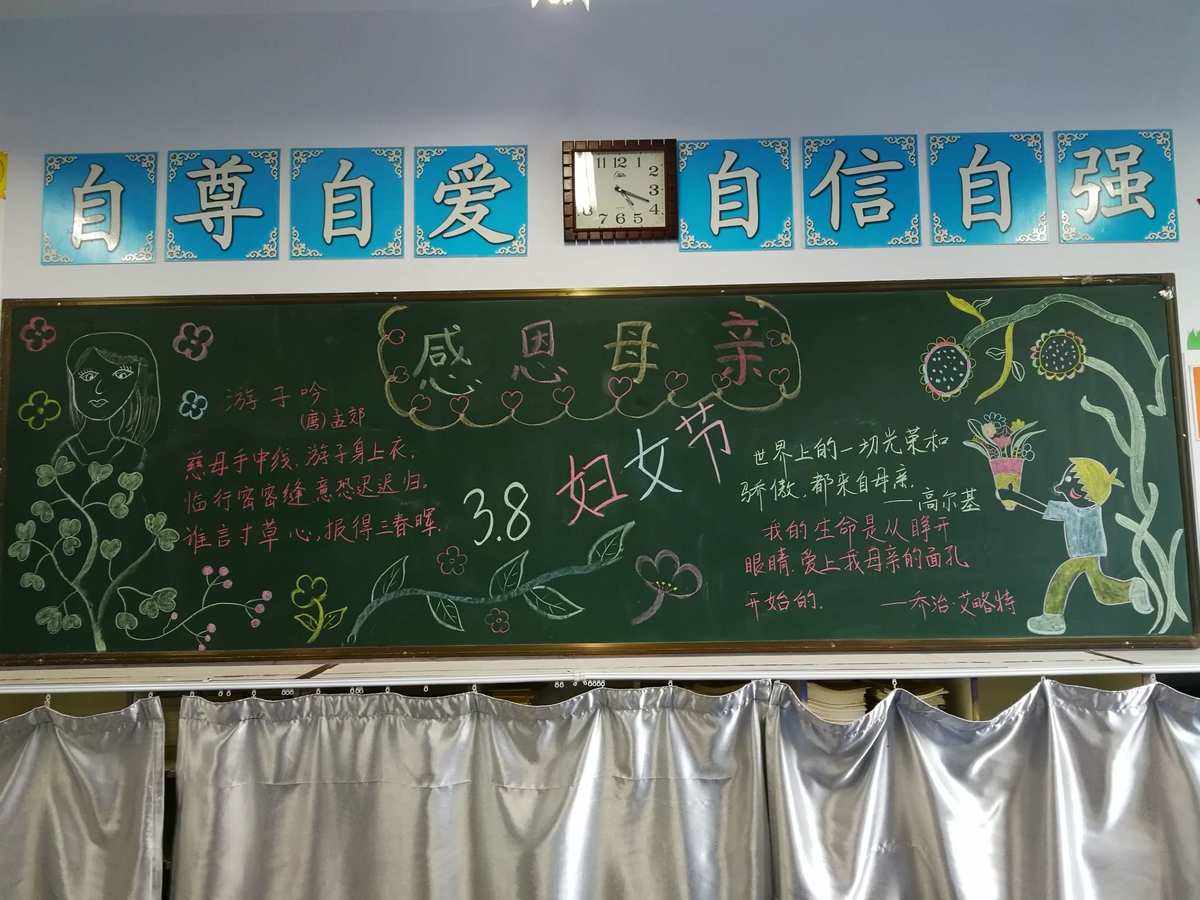 自尊自爱
自信自强
11 12 1
2
3
4
8
7 6 5
感恩母亲
游子吟
(唐)孟郊
慈母手中线,游子身上衣,
临行密密缝,意恐迟迟归。
谁言寸草心,报得三春晖.
3.8 妇女节
世界上的一切光荣和
骄傲,都来自母亲.
——高尔基
我的生命是从睁开
眼睛,爱上我母亲的面孔
开始的.
——乔治·艾略特